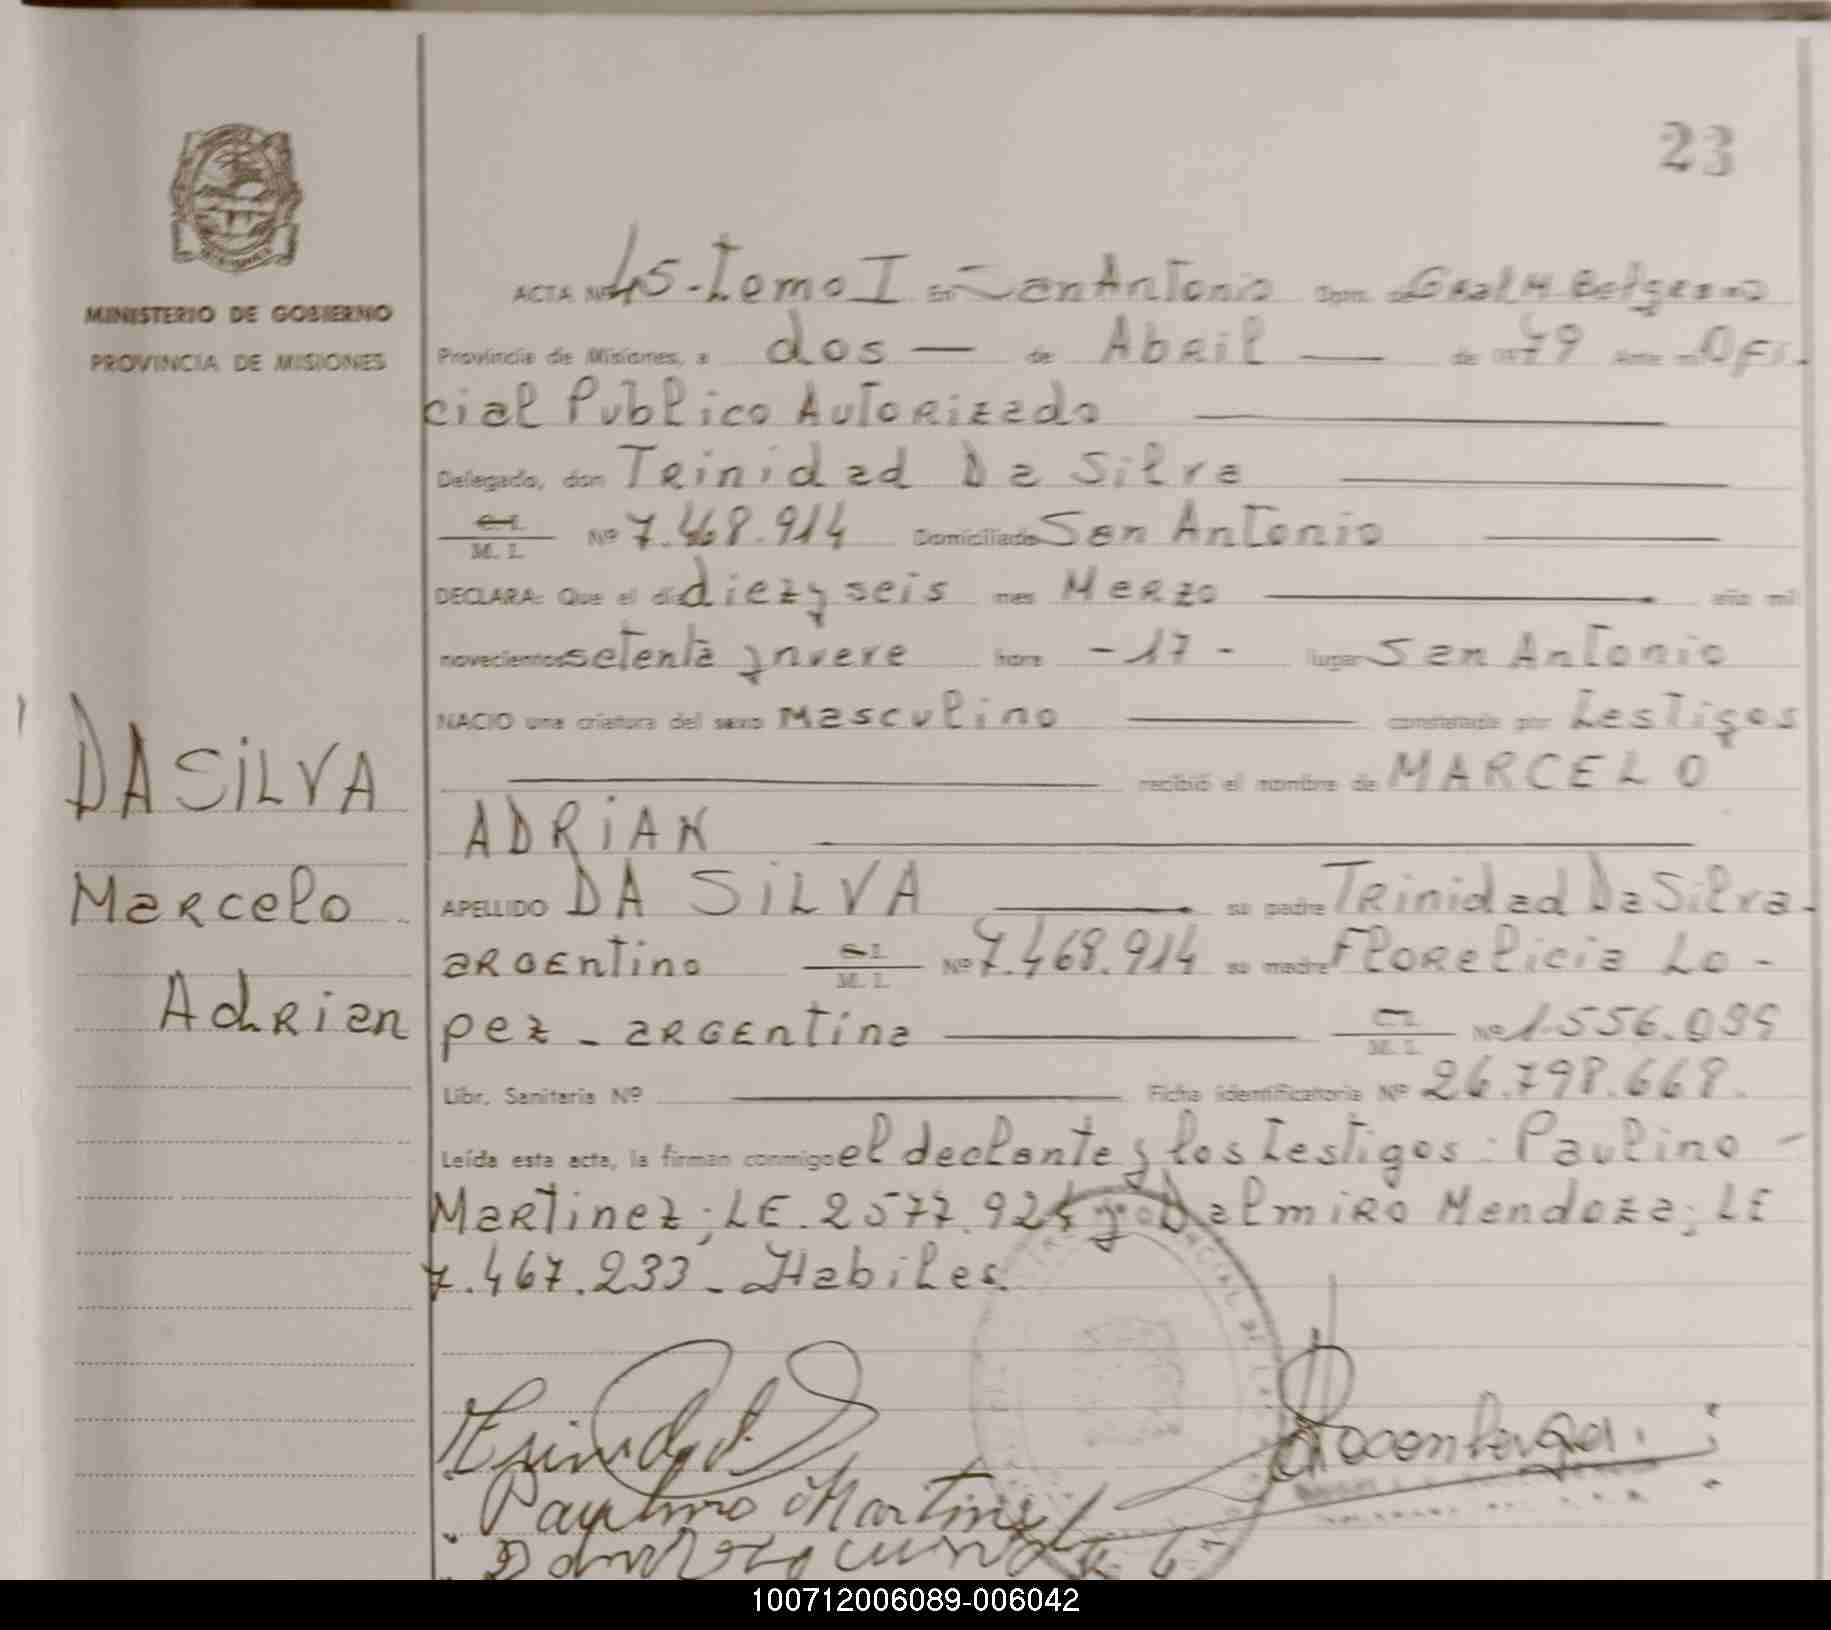 23
MINISTERIO DE GOBIERNO
PROVINCIA DE MISIONES
ACTA Nº 45 - Tomo I en San Antonio Dpto. de Gral M Belgrano
Provincia de Misiones, a dos — de Abril — de 1979 Ante mi Ofi-
cial Publico Autorizado
Delegado, don Trinidad Da Silva
C.I. M. I. Nº 7.468.914 Domiciliado San Antonio
DECLARA: Que el día diez y seis mes Marzo año mil
novecientos setenta y nueve hora - 17 - lugar San Antonio
NACIO una criatura del sexo masculino constatado por testigos
recibió el nombre de MARCELO
ADRIAN
APELLIDO DA SILVA su padre Trinidad Da Silva.
argentino C.I. M. I. Nº 7.468.914 su madre Florelicia Lo-
pez - argentina C.I. M. I. Nº 1.556.099
Libr. Sanitaria Nº Ficha identificatoria Nº 26.798.668.
Leída esta acta, la firman conmigo el declante y los testigos: Paulino -
Martinez; LE. 2577.924 y Dalmiro Mendoza; LE
7.467.233 - Habiles.
DA SILVA
Marcelo
Adrian
Trinidad
Paulino Martinez
100712006089-006042